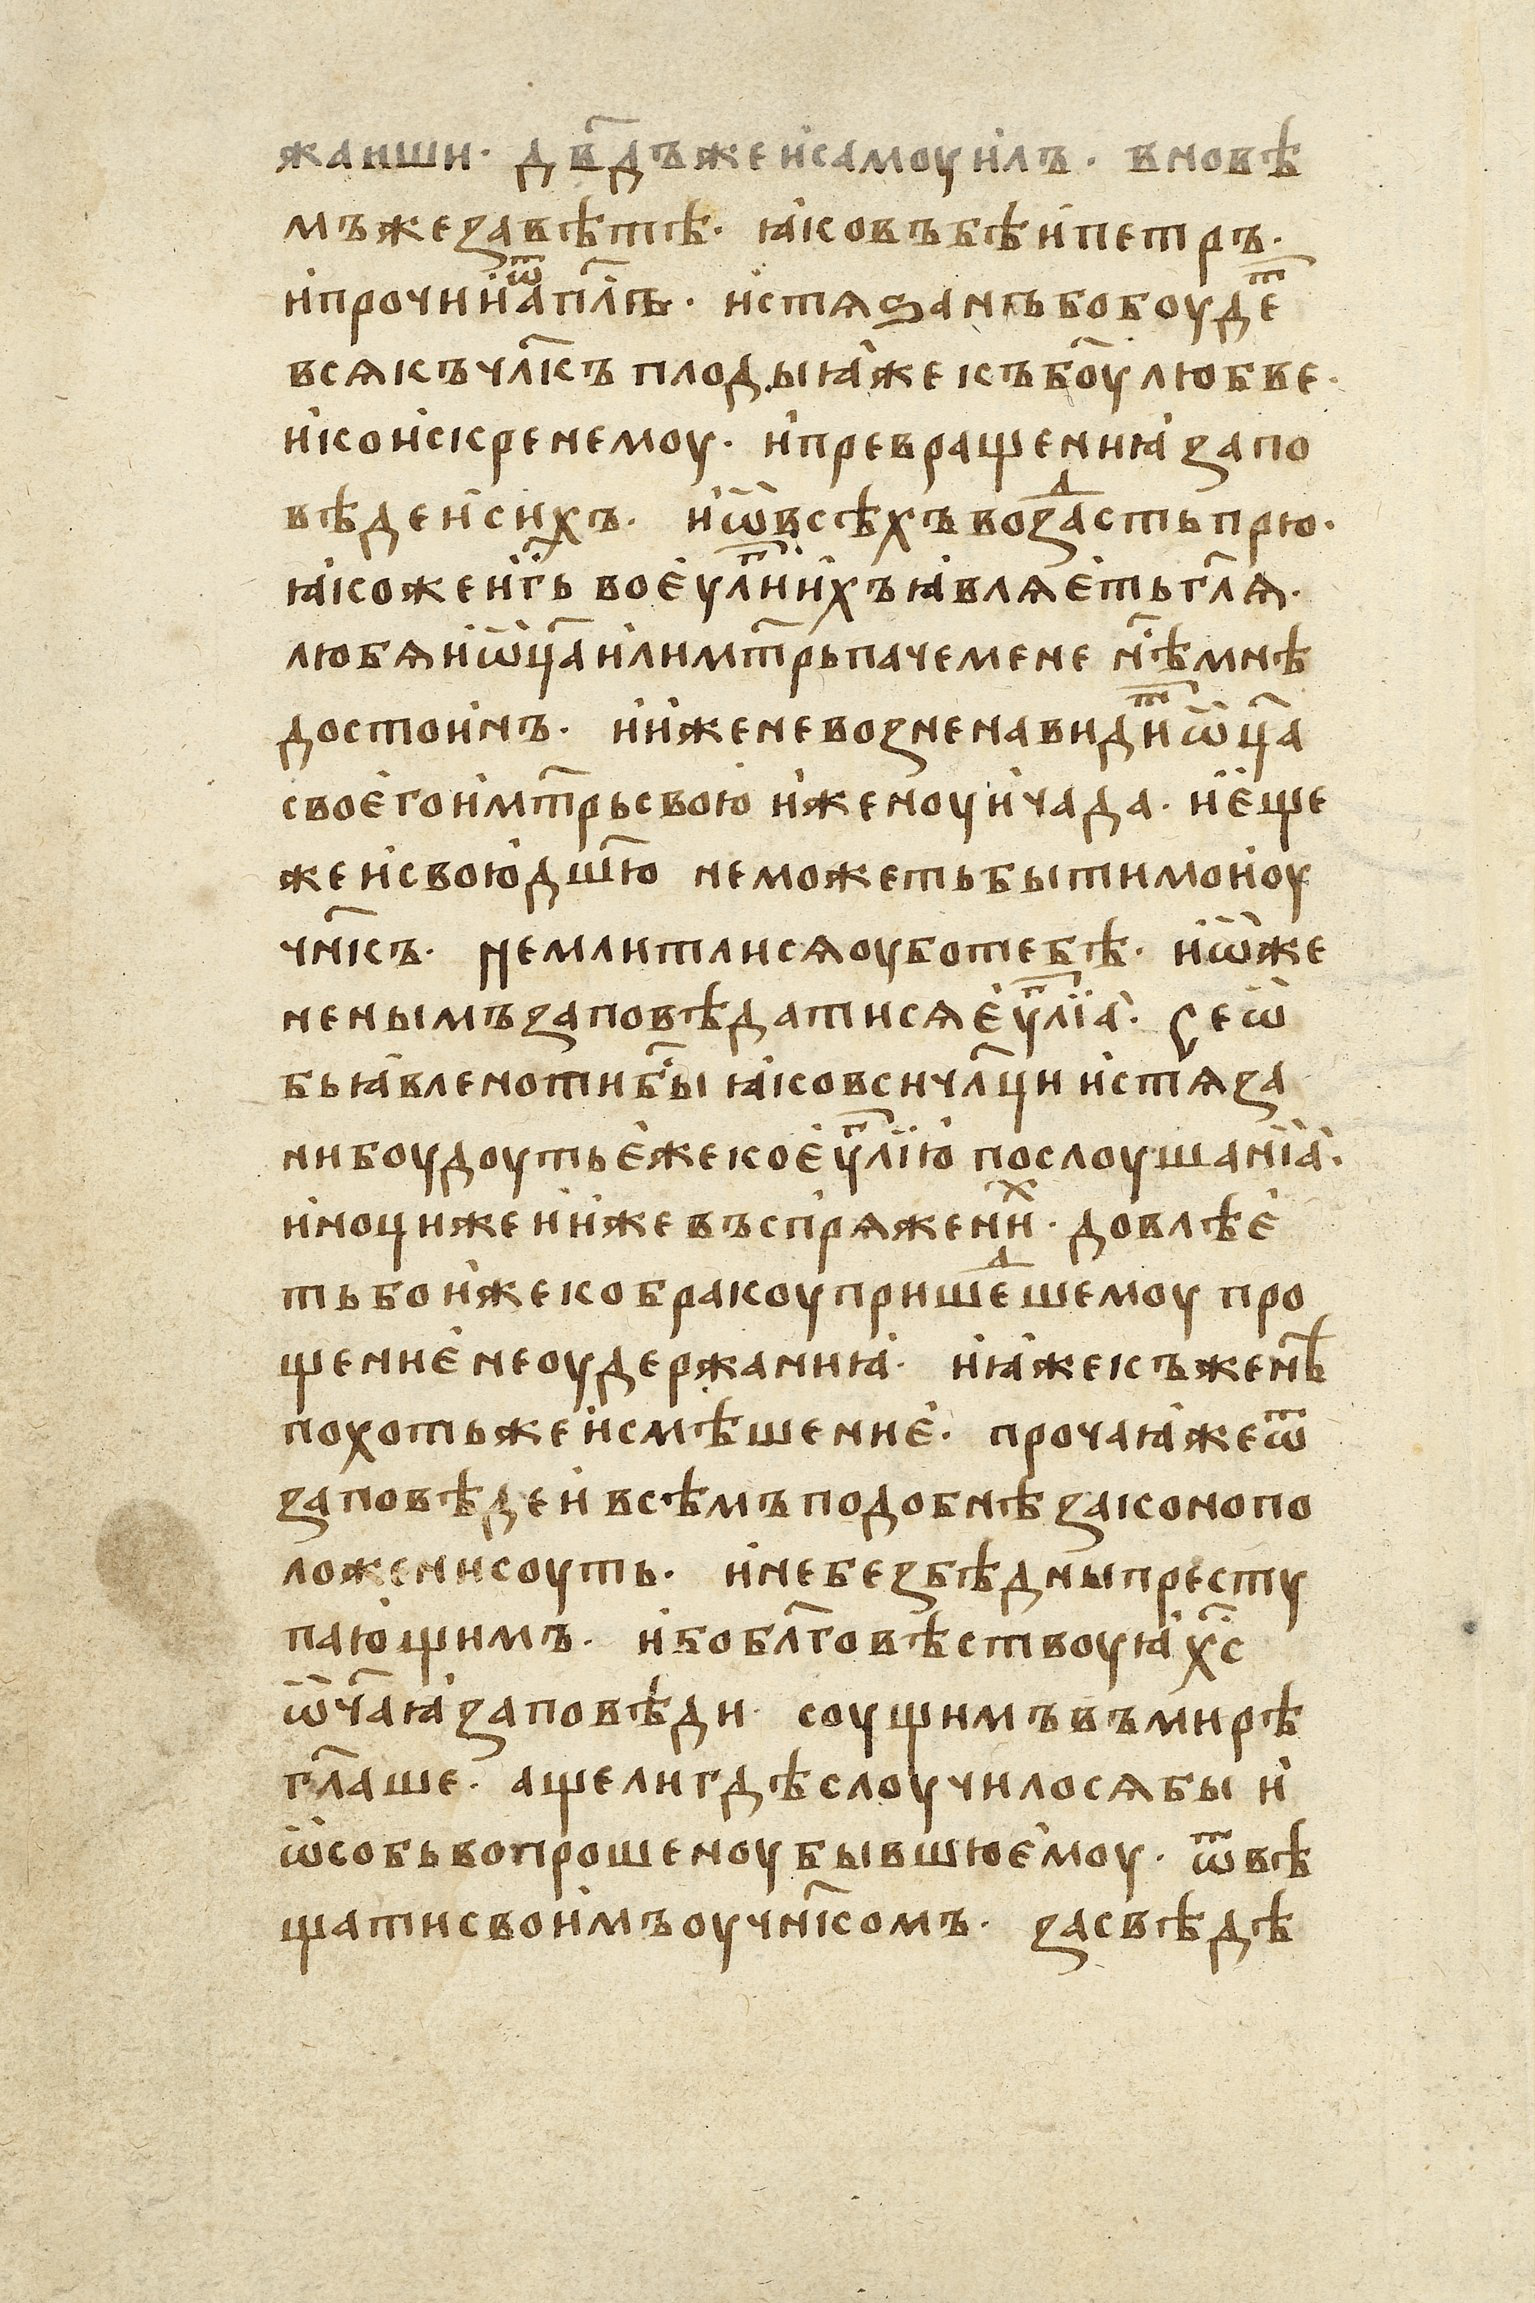 жаиши· дв҃дъжеи҆самоуи҆лъ· вновѣ
мъжеꙁавѣтѣ· ꙗ҆ковъбѣи҆петръ·
и҆прочии҆ѿап҃лъ· и҆стѧѕанъбобоудеⷮ
всѧкъчл҃къ плодыꙗ҆жекъбо҃улюбве·
и҆кои҆скренемоу· и҆превращениꙗ҆ꙁапо
вѣдеи҆си҆хъ· и҆ѡ҆всѣхъвоꙁаⷣстьпрю·
ꙗ҆кожеи҆г҃ь вое҆уⷢ҇лии҆хъꙗ҆влѧе҆тьгл҃ѧ·
любѧи҆ѡ҆ц҃аи҆лимт҃рьпачемене нѣ҃мнѣ
достоинъ· и҆и҆женевоꙁненавидиⷮѡ҆ц҃а
свое҆гои҆мт҃рьсвою҆ и҆женоуи҆чада· и҆е҆ще
жеи҆свою҆дш҃ю неможетьбытимои҆оу
чн҃къ· Немлитлисѧоуботебѣ· и҆ѡ҆же
ненымъꙁаповѣдатисѧе҆уⷢ҇лїа҆· Сеѡ҆
бьꙗ҆вленотибы҃ ꙗ҆ковсичл҃ци и҆стѧꙁа
нибоудоутье҆жекое҆уⷢ҇лїю҆ послоушанїа҆·
и҆ноцижеи҆и҆жевъспрѧжениⷯ· довлѣе҆
тьбои҆жекобракоупришеⷣшемоу про
щение҆неоудержаниꙗ҆· и҆ꙗ҆жекъженѣ
похотьжеи҆смѣшение҆· прочаꙗ҆жеѿ
ꙁаповѣдеи҆ всѣмъподобнѣꙁаконопо
ложенисоуть· и҆небеꙁбѣдныпресту
паю҆щимъ· и҆бобл҃говѣствоуꙗ҆х҃с
ѡ҆ч҃аꙗ҆ꙁаповѣди· соущимъвъмирѣ
гл҃аше· ащелигдѣслоучилосѧбы и҆
ѡ҆собьвопрошеноубывшюе҆моу· ѿвѣ
щатисвои҆мъоучн҃комъ· ꙁасвѣдѣ